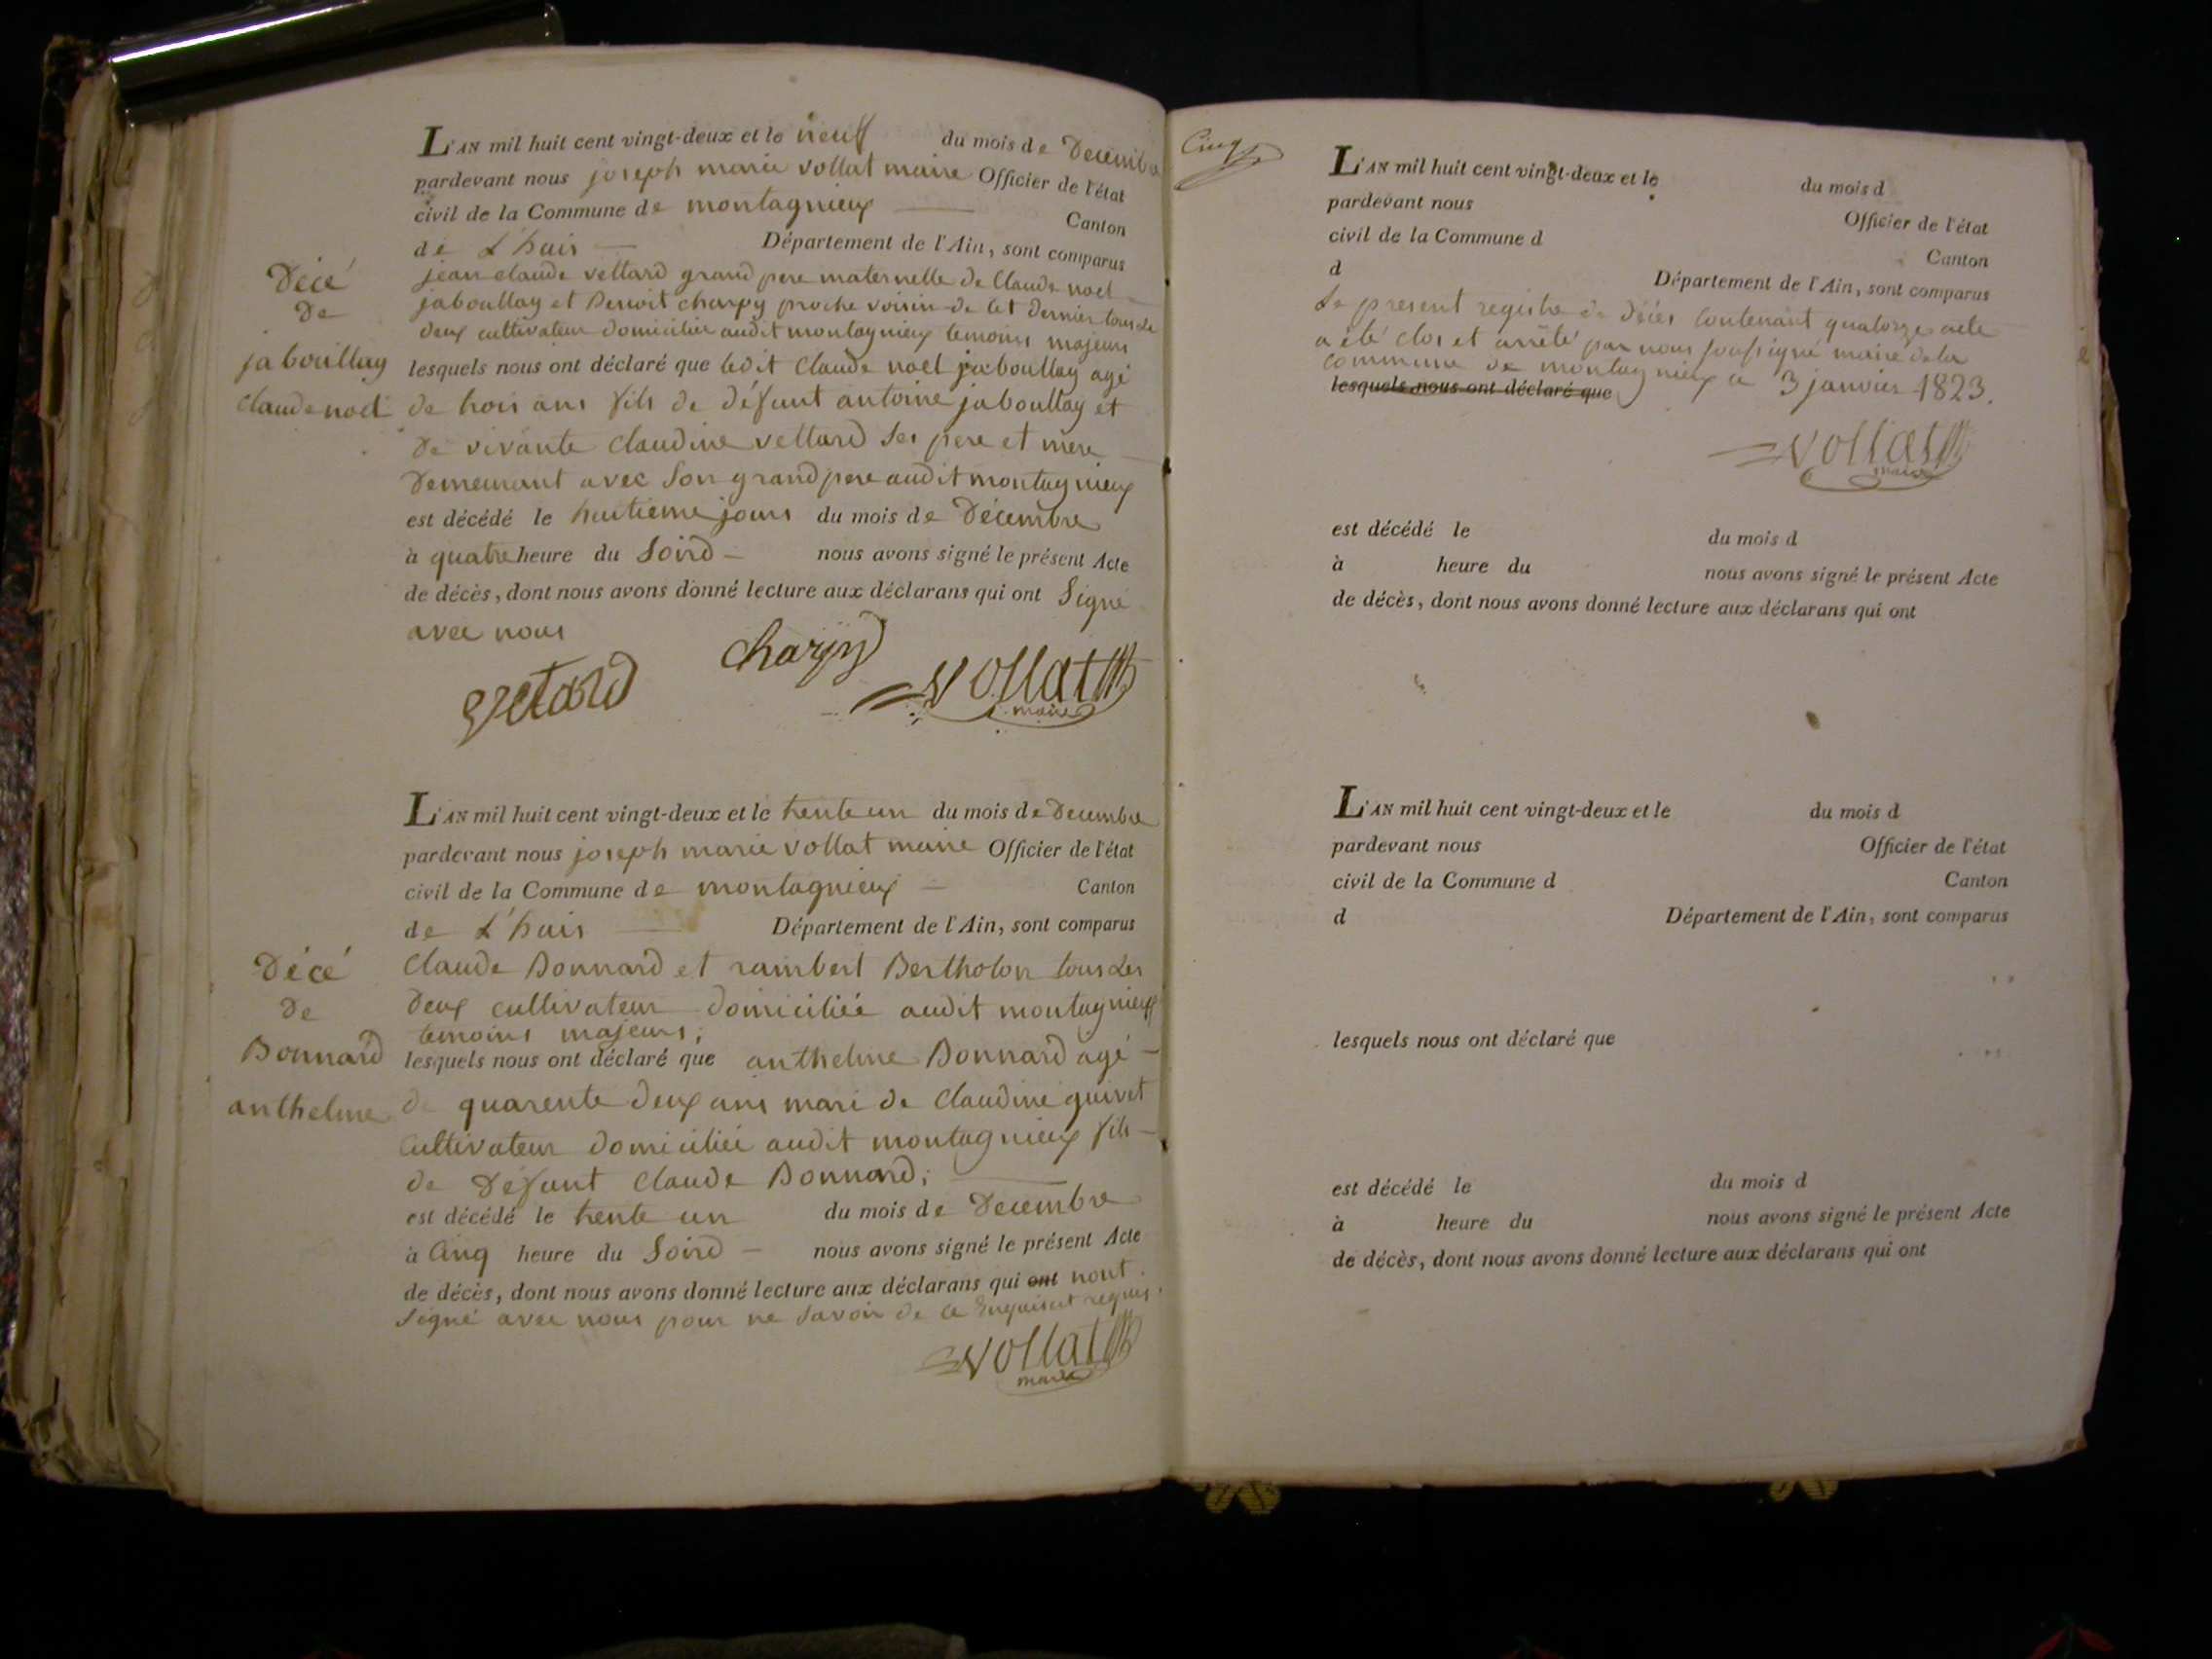 L'AN mil huit cent vingt-deux et le neuff du mois de Decembre
pardevant nous joseph marie vollat maire Officier de l'état
civil de la Commune de montagnieux Canton
de L'huis Département de l'Ain, sont comparus
Décé
de
jaboullay
claude noel
jean claude vettard grand pere maternelle de Claude noel
jaboullay et Benoit charpy proche voisin de cet dernier tous les
deux cultivateur domicilié audit montagnieux temoins majeurs
lesquels nous ont déclaré que ledit Claude noel jaboullay agé
de trois ans fils de défunt antoine jaboullay et
de vivante Claudine vettard ses pere et mere
Demeurant avec son grand pere audit montagnieux
est décédé le huitieme jours du mois de Décembre
à quatre heure du Soird nous avons signé le présent Acte
de décès, dont nous avons donné lecture aux déclarans qui ont Signé
avec nous
vetard charpy vollat
maire
L'AN mil huit cent vingt-deux et le trente un du mois de Decembre
pardevant nous joseph marie vollat maire Officier de l'état
civil de la Commune de montagnieux Canton
de L'huis Département de l'Ain, sont comparus
Décé
de
Bonnard
anthelme
Claude Bonnard et rambert Bertholon tous les
Deux cultivateur domiciliée audit montagnieux
temoins majeurs;
lesquels nous ont déclaré que anthelme Bonnard agé
de quarente deux ans mari de Claudine guivet
Cultivateur domiciliée audit montagnieux fils
de Défunt Claude Bonnard;
est décédé le trente un du mois de Decembre
à Cinq heure du Soird nous avons signé le présent Acte
de décès, dont nous avons donné lecture aux déclarans qui ont nont
Signé avec nous pour ne Savoir de ce Enquis et requis.
vollat
maire
Cinq
L'AN mil huit cent vingt-deux et le du mois d
pardevant nous Officier de l'état
civil de la Commune d Canton
d Département de l'Ain, sont comparus
Le present registre de décés Contenant quatorze acte
a été clos et arrêté par nous soussigné maire de la
commune de montagnieux ce 3 janvier 1823.
lesquels nous ont déclaré que
vollat
maire
est décédé le du mois d
à heure du nous avons signé le présent Acte
de décès, dont nous avons donné lecture aux déclarans qui ont
L'AN mil huit cent vingt-deux et le du mois d
pardevant nous Officier de l'état
civil de la Commune d Canton
d Département de l'Ain, sont comparus
lesquels nous ont déclaré que
est décédé le du mois d
à heure du nous avons signé le présent Acte
de décès, dont nous avons donné lecture aux déclarans qui ont